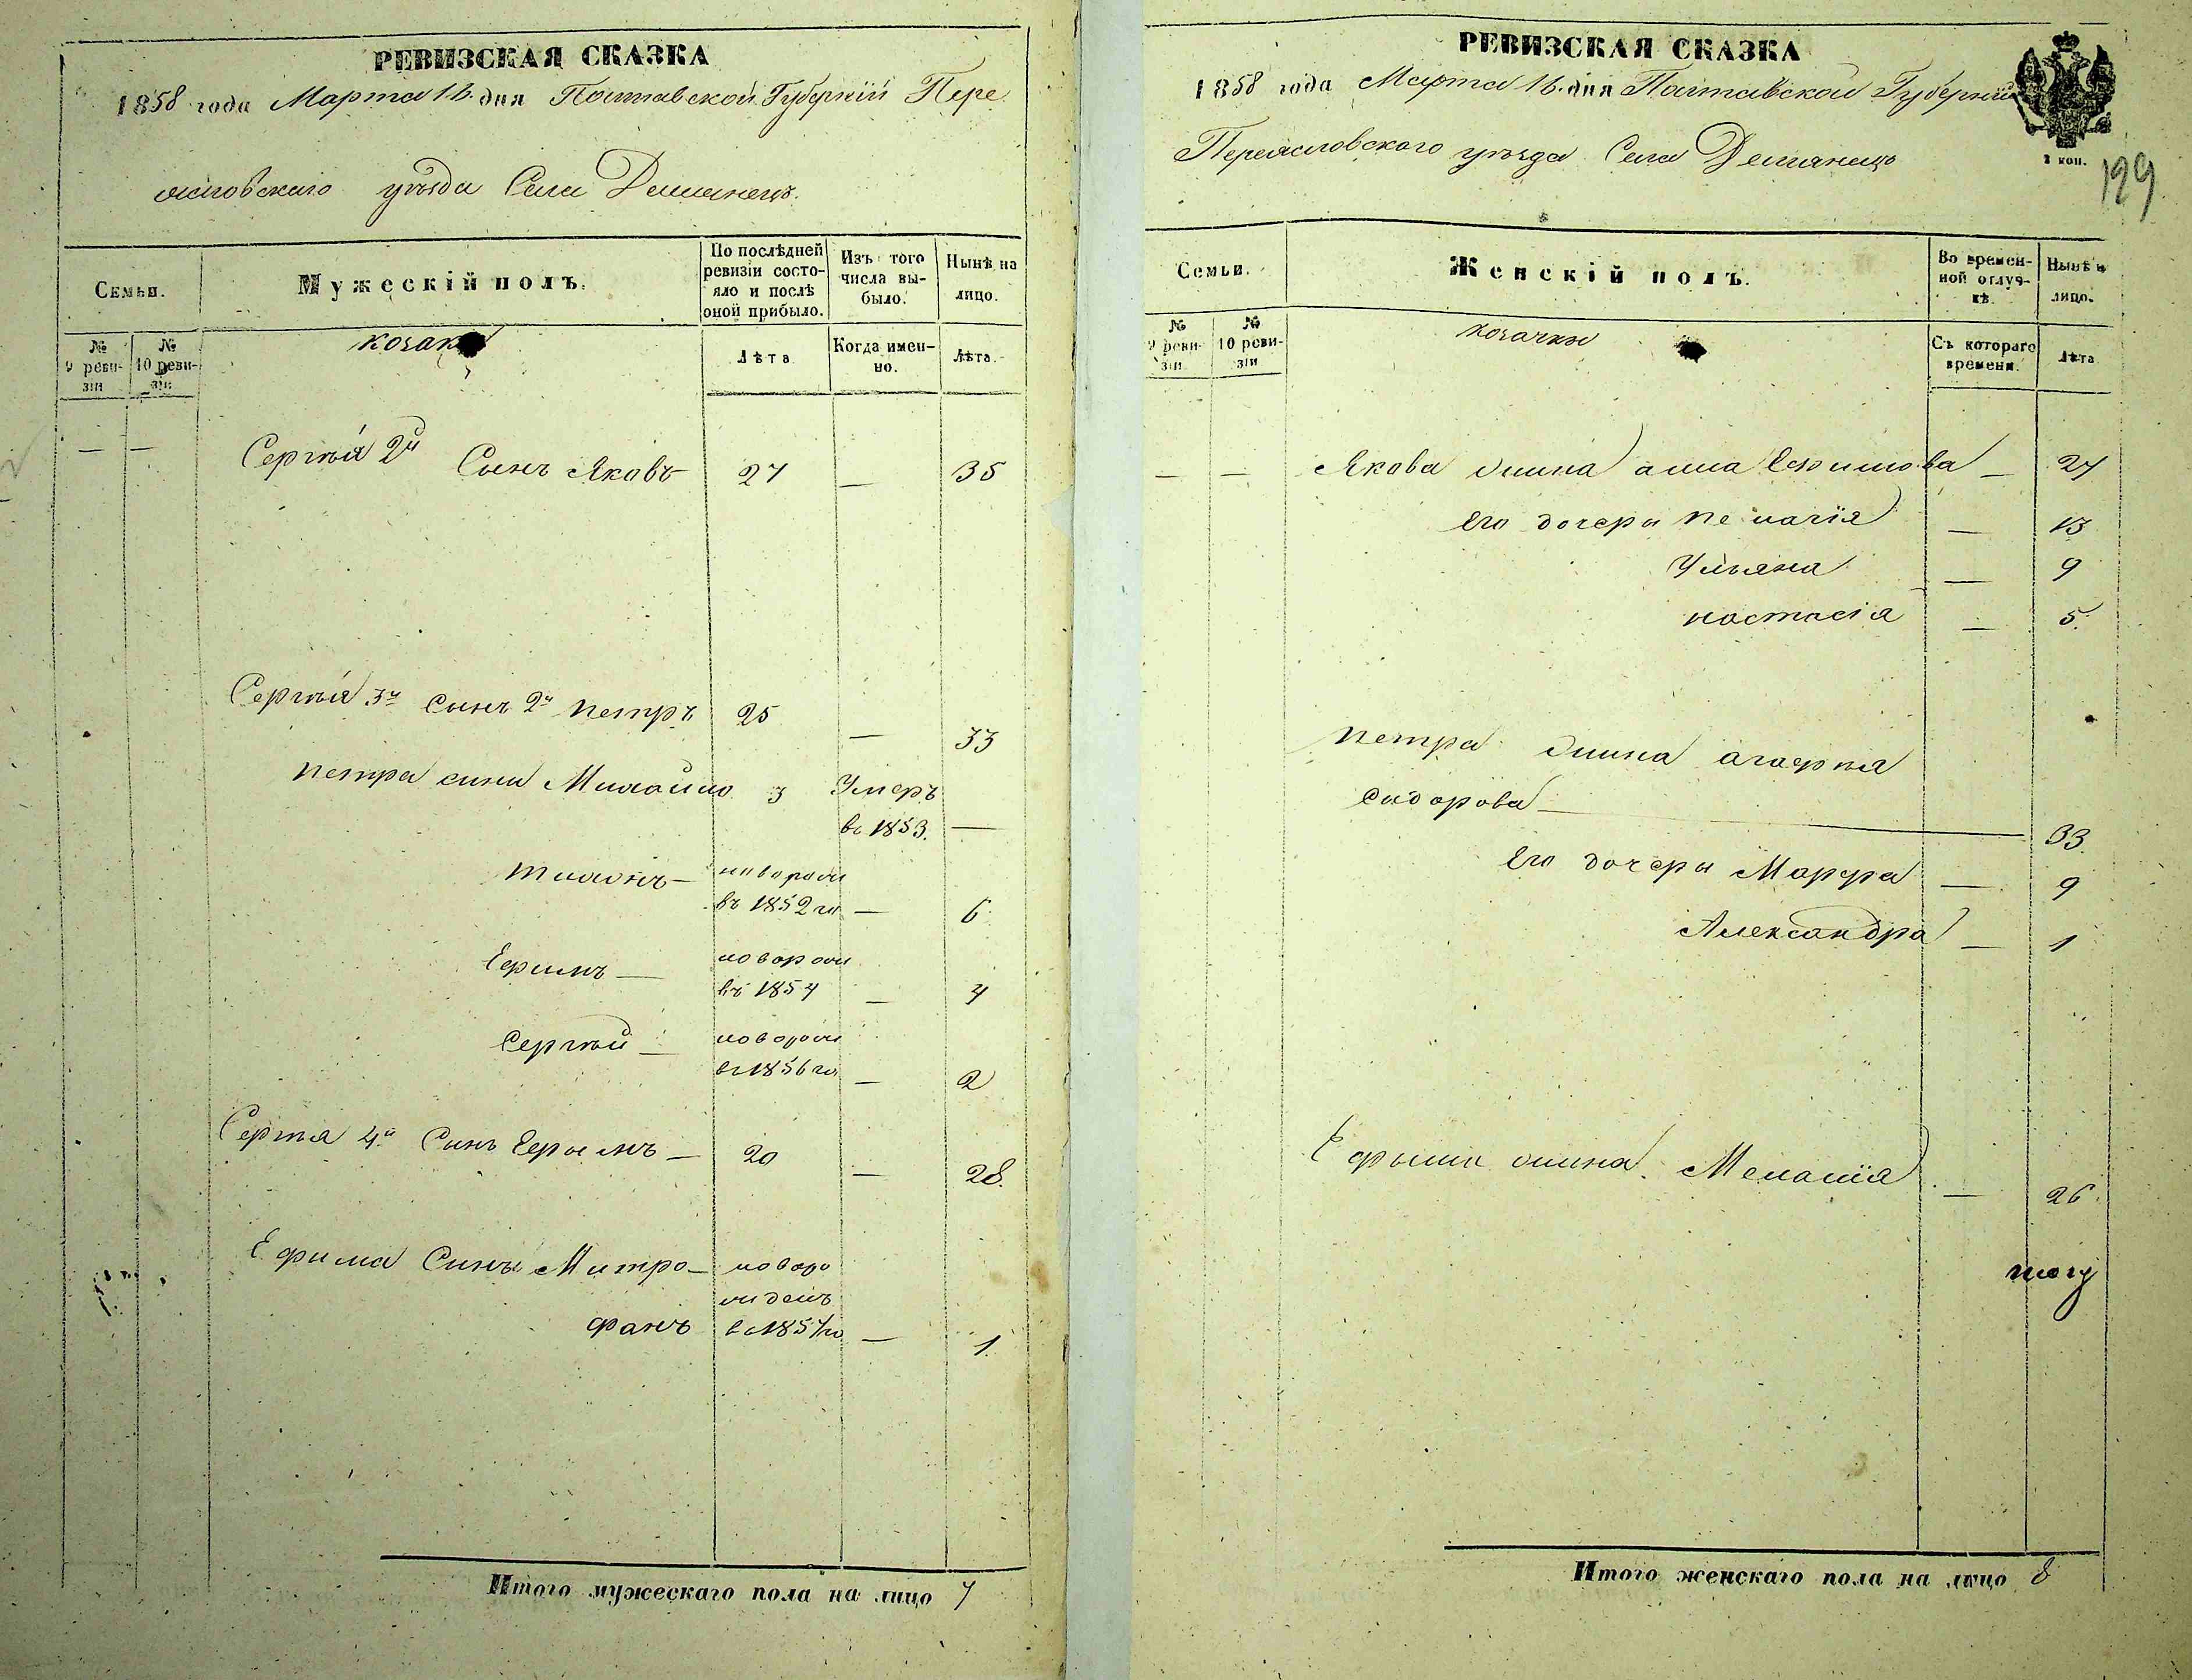 РЕВИЗСКАЯ СКАЗКА
1858 года Марта 16. дня Полтавской Губерніи Пере
яславскаго уѣзда Села Демянецъ.
Семьи.
Мужескій полъ.
По послѣдней ревизіи состояло и послѣ оной прибыло.
Изъ того числа выбыло.
Нынѣ на лицо.
№ 9 ревизіи
№ 10 ревизіи
козаки
Лѣта
Когда именно.
Лѣта.
— — Сергѣя 2й Сынъ Яковъ 27 — 35
Сергѣя 3й Сынъ 2й Петръ 25 — 33
Петра сини Михайло 3 Умеръ
въ 1853. —
Тихонъ — новорож
въ 1852 го — 6
Ефимъ — новорож
въ 1854 — 4
Сергѣй — новорож
въ 1856 го — 2
Сергѣя 4й Синъ Ефимъ — 20 — 28.
Ефима Синъ Митро — новоро
жденъ
фанъ въ 1857 го — 1.
Итого мужескаго пола на лицо 7
РЕВИЗСКАЯ СКАЗКА
1858 года Марта 16. дня Полтавской Губерніи
Переясловского уѣзда Села Демянецъ
1 коп.
129
Семьи.
Женскій полъ.
Во временной отлучкѣ.
Нынѣ на лицо.
№ 9 ревизіи
№ 10 ревизіи
козачки
Съ котораго времени.
Лѣта
— — Якова жина анна Ефимова — 27
Его дочери Пелагія — 13
Ульяна — 9
настасія — 5.
Петра жина агафія
Сидорова — 33.
Его дочери Марфа — 9
Александра — 1
Ефима жина Меланія — 26
Итого женскаго пола на лицо 8